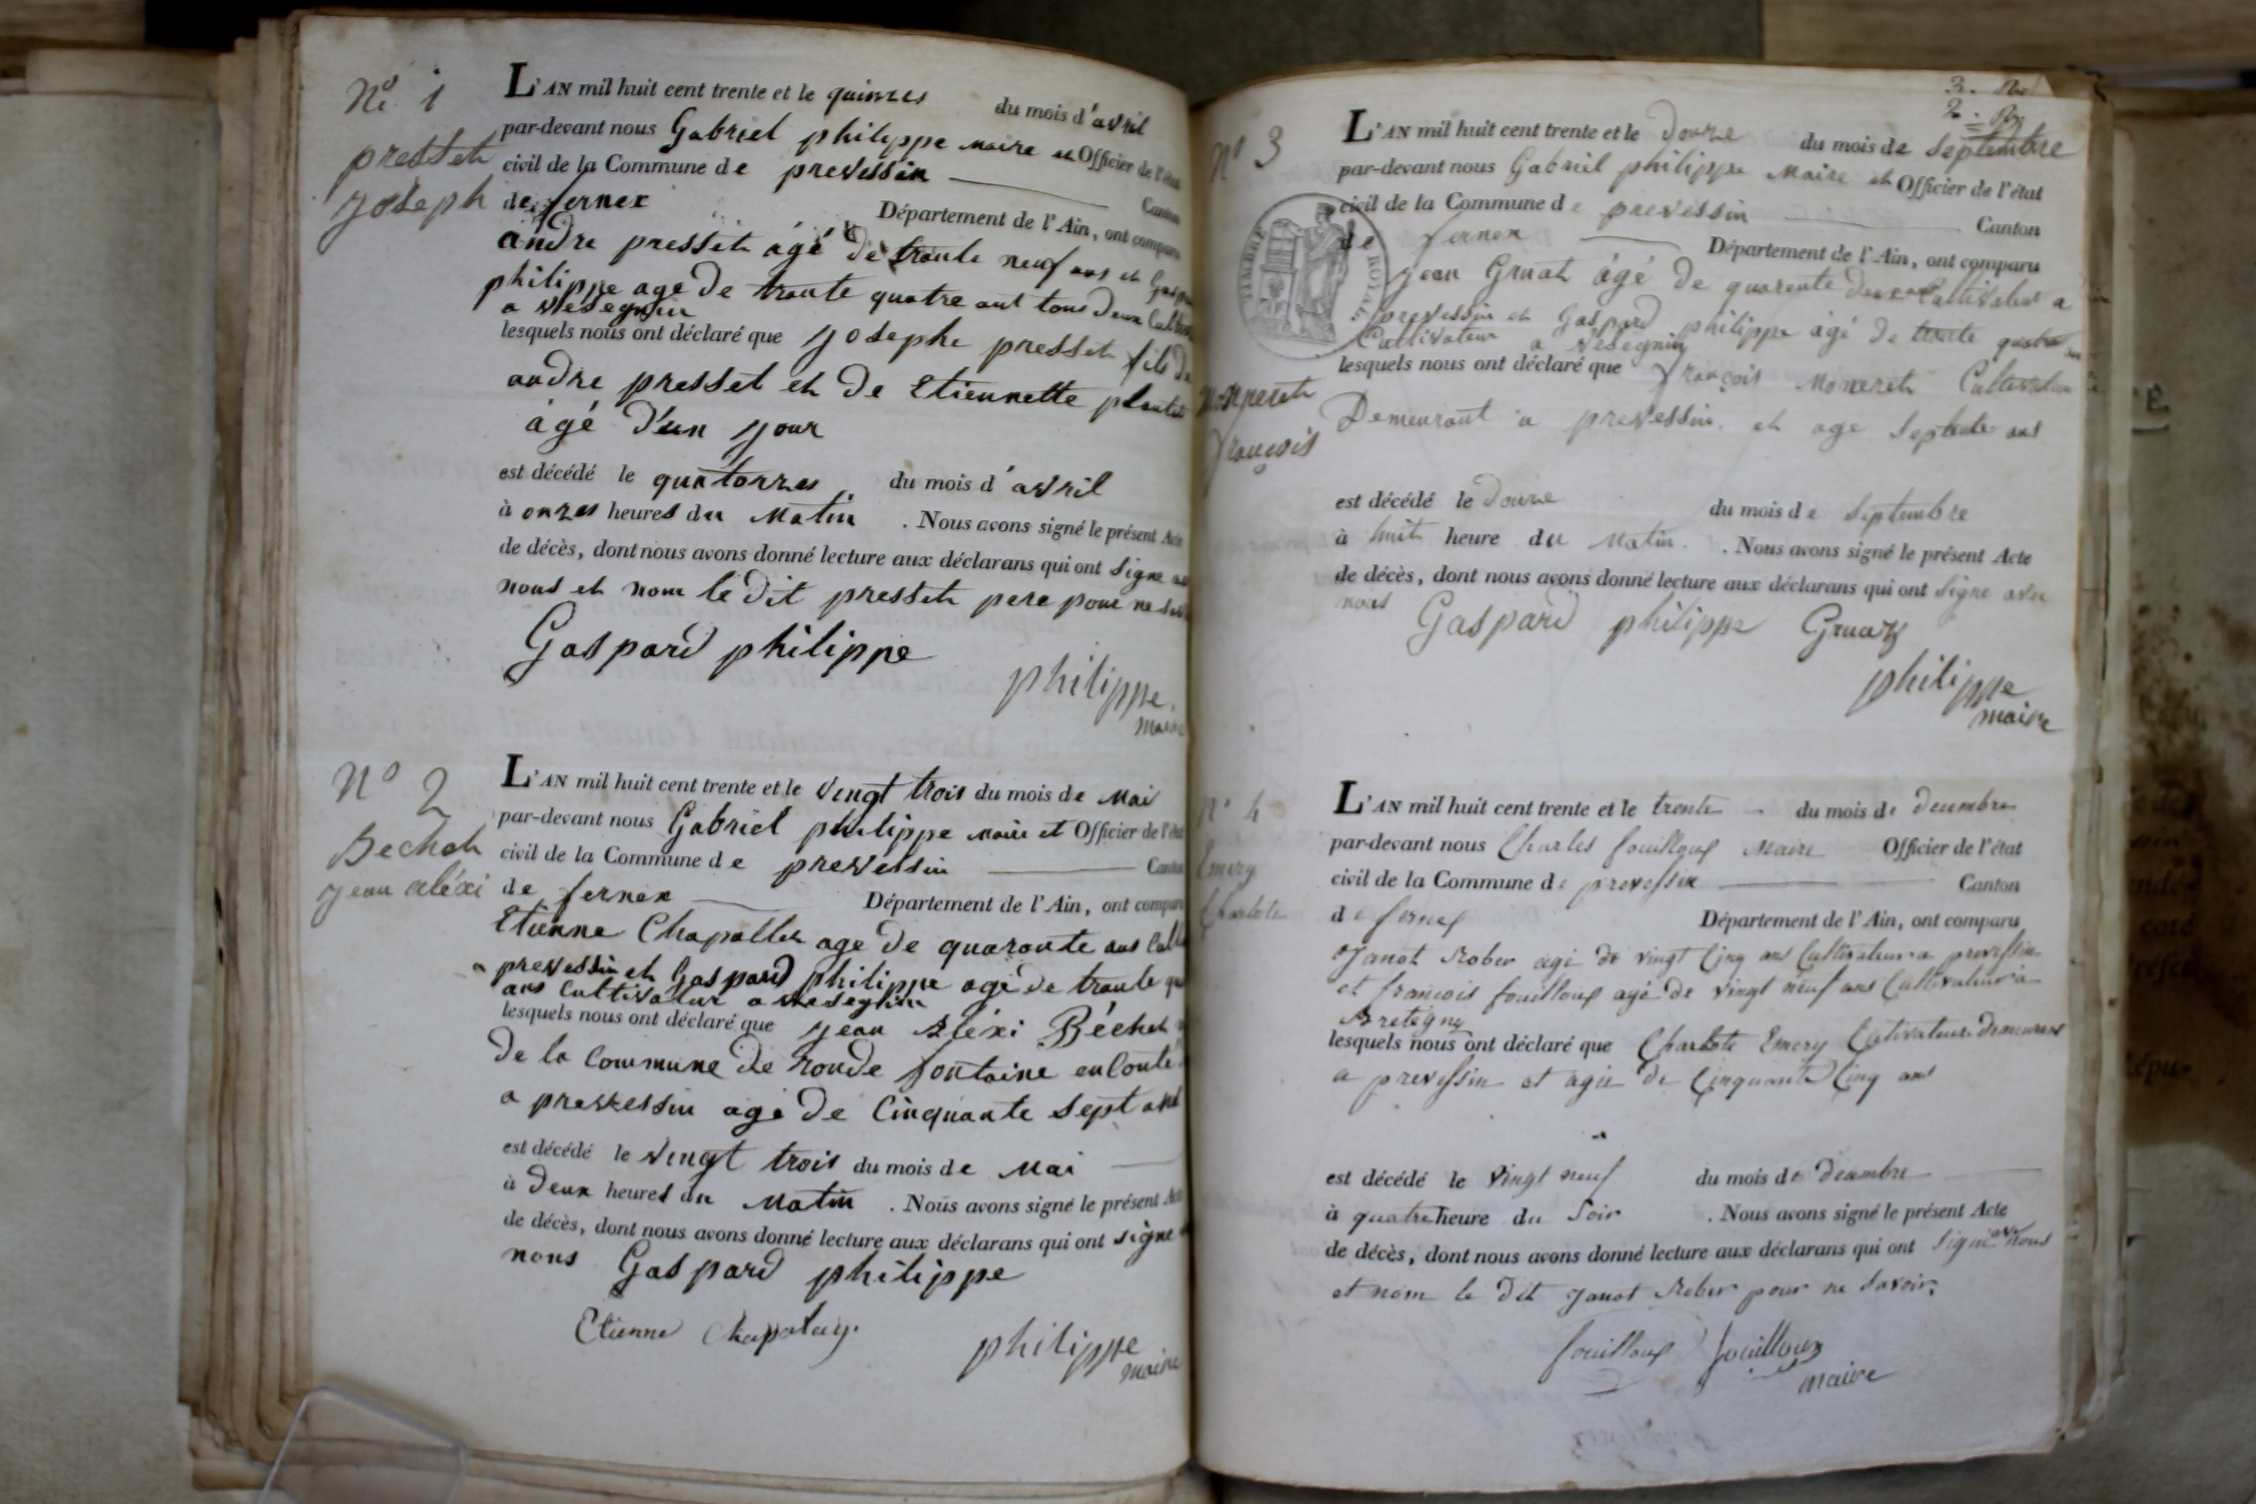 N° 1
pressets
Joseph
L'AN mil huit cent trente et le quinzes du mois d'avril
par-devant nous Gabriel philippe maire et Officier de l'état
civil de la Commune de prevessin Canton
de fernex Département de l'Ain, ont comparu
andre presset âgé de trante neuf ans et
philippe age de trante quatre ans tous deux
a vesegnin
lesquels nous ont déclaré que Josephe presset fils de
andre presset et de Etiennette
âgé d'un jour
est décédé le quatorzes du mois d'avril
à onzes heures du Matin . Nous avons signé le présent Acte
de décès, dont nous avons donné lecture aux déclarans qui ont signe
nous et nom le dit presset pere pour ne
Gaspard philippe
philippe
maire
N° 2
Bechet
jean aléxi
L'AN mil huit cent trente et le vingt trois du mois de Mai
par-devant nous Gabriel philippe maire et Officier de l'état
civil de la Commune de prevessin Canton
de fernex Département de l'Ain, ont comparu
Etienne Chapallet age de quarante ans
a prevessin et Gaspard philippe age de trante
ans Cultivateur a vesegnin
lesquels nous ont déclaré que jean aléxi Béchet
de la Commune de ronde fontaine
a prevessin age de Cinquante sept ans
est décédé le vingt trois du mois de Mai
à deux heures du Matin . Nous avons signé le présent Acte
de décès, dont nous avons donné lecture aux déclarans qui ont signe
nous Gaspard philippe
Etienne Chapalay
philippe
maire
N° 3
Moneret
françois
TIMBRE ROYAL
L'AN mil huit cent trente et le douze du mois de Septembre
par-devant nous Gabriel philippe Maire et Officier de l'état
civil de la Commune de prevessin Canton
de fernex Département de l'Ain, ont comparu
jean Gruat âgé de quarente Cultivateur a
prevessin et Gaspard philippe âgé de trente quatre
Cultivateur a vesegnin
lesquels nous ont déclaré que françois Moneret Cultivateur
Demeurant a prevessin et age septente ans
est décédé le douze du mois de Septembre
à huit heure du Matin . Nous avons signé le présent Acte
de décès, dont nous avons donné lecture aux déclarans qui ont signe avec
nous Gaspard philippe Gruaz
philippe
maire
N° 4
Emery
Charlote
L'AN mil huit cent trente et le trente du mois de decembre
par-devant nous Charles fouilloux Maire Officier de l'état
civil de la Commune de prevessin Canton
de fernex Département de l'Ain, ont comparu
Janot Rober agé de vingt Cinq ans Cultivateur a prevessin
et françois fouilloux agé de vingt neuf ans Cultivateur a
Bretegny
lesquels nous ont déclaré que Charlote Emery Cultivateur demeurant
a prevessin et agée de Cinquante Cinq ans
est décédé le vingt neuf du mois de decembre
à quatre heure du Soir . Nous avons signé le présent Acte
de décès, dont nous avons donné lecture aux déclarans qui ont signé avec nous
et nom le dit Janot Rober pour ne Savoir.
fouilloux fouilloux
maire